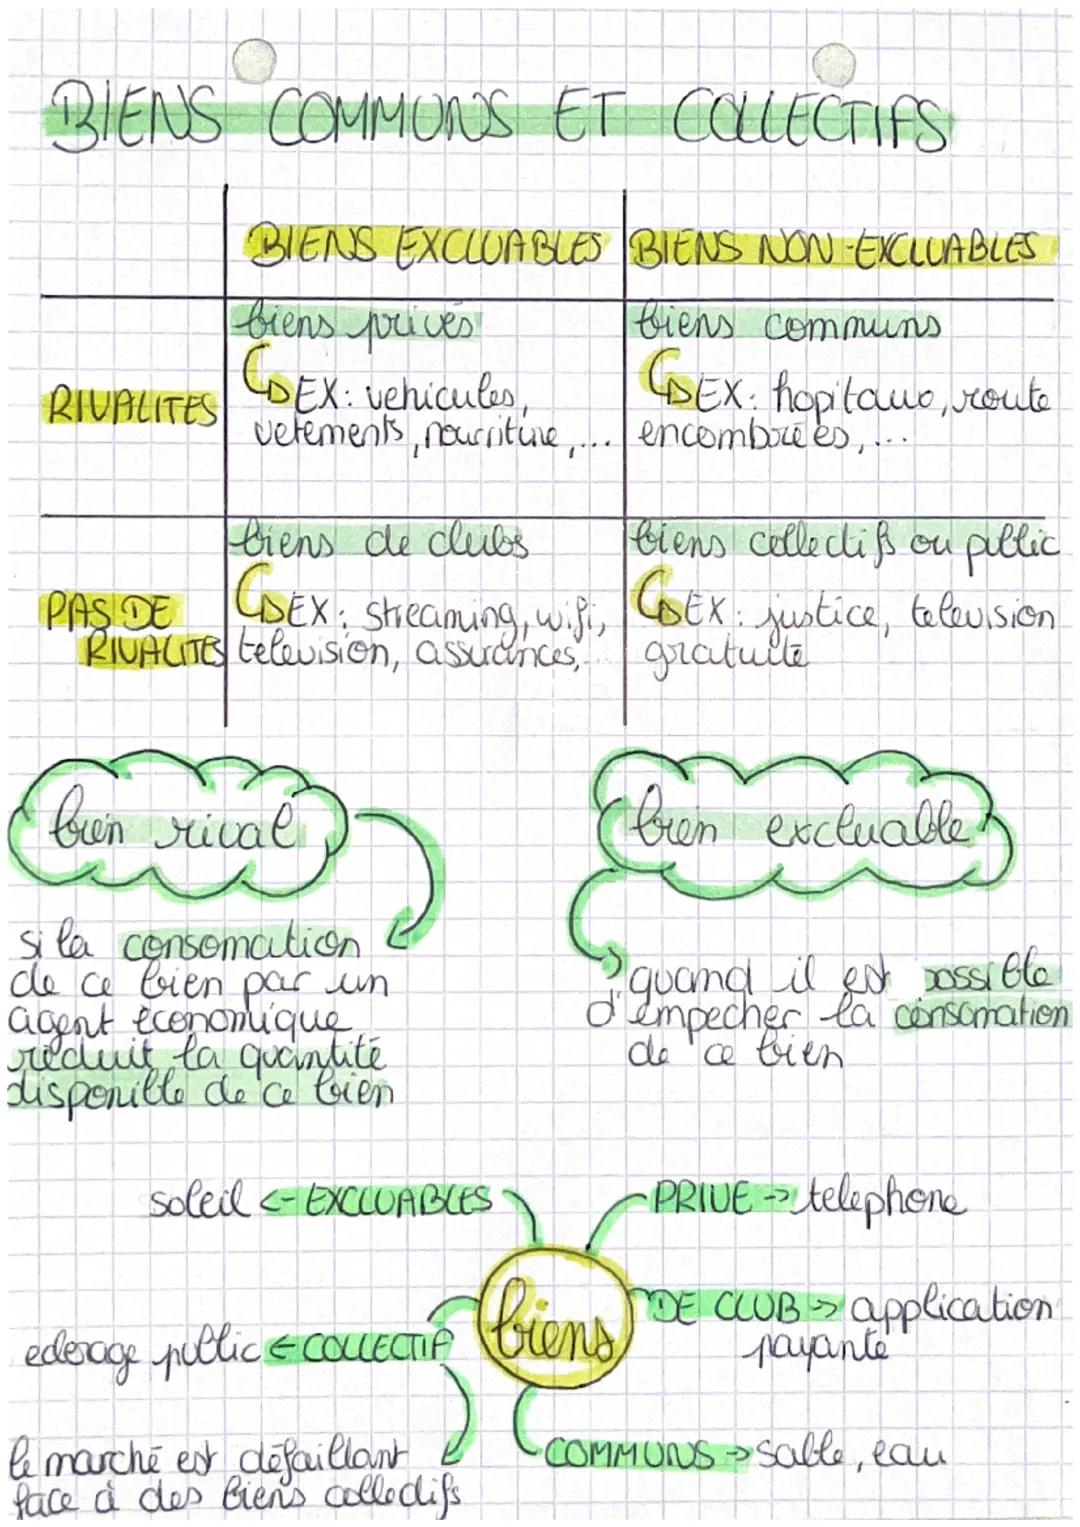 BIENS COMMUNS ET COLLECTIFS
BIENS EXCLUABLES
BIENS NON-EXCLUABLES
RIVALITES
biens privés
EX: vehicules,
vetements, nourriture,...
biens communs
EX: hopitaux, route
encombrées,...
PAS DE
RIVALITES
biens de clubs
EX: streaming, wifi,
television, assurances,...
biens collectifs ou public
EX: justice, television
gratuité
bien rival
si la consomation
de ce bien par un
agent économique
réduit la quantité
disponible de ce bien
bien excluable
quand il est possible
d'empecher la consomation
de ce bien
biens
soleil <- EXCLUABLES
PRIVE -> telephone
DE CLUB -> application
payante
public <- COLLECTIF
COMMUNS -> sable, eau
le marché est défaillant
face à des biens collectifs